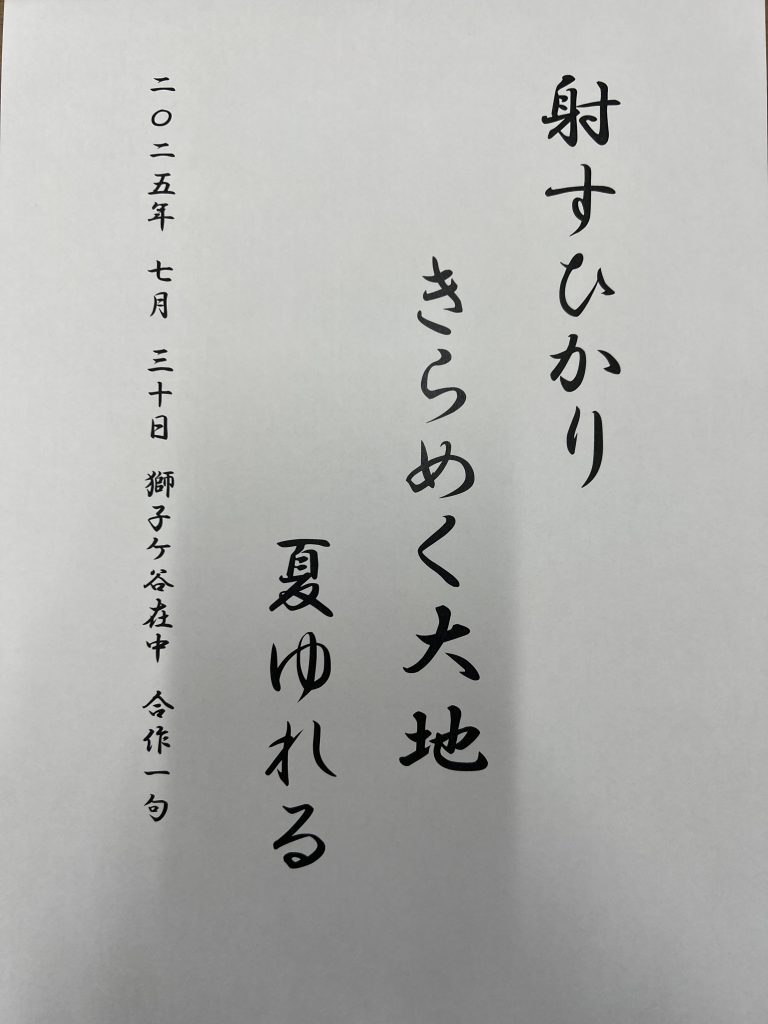 射すひかり
きらめく大地
夏ゆれる
二〇二五年 七月 三十日 獅子ケ谷在中 合作一句